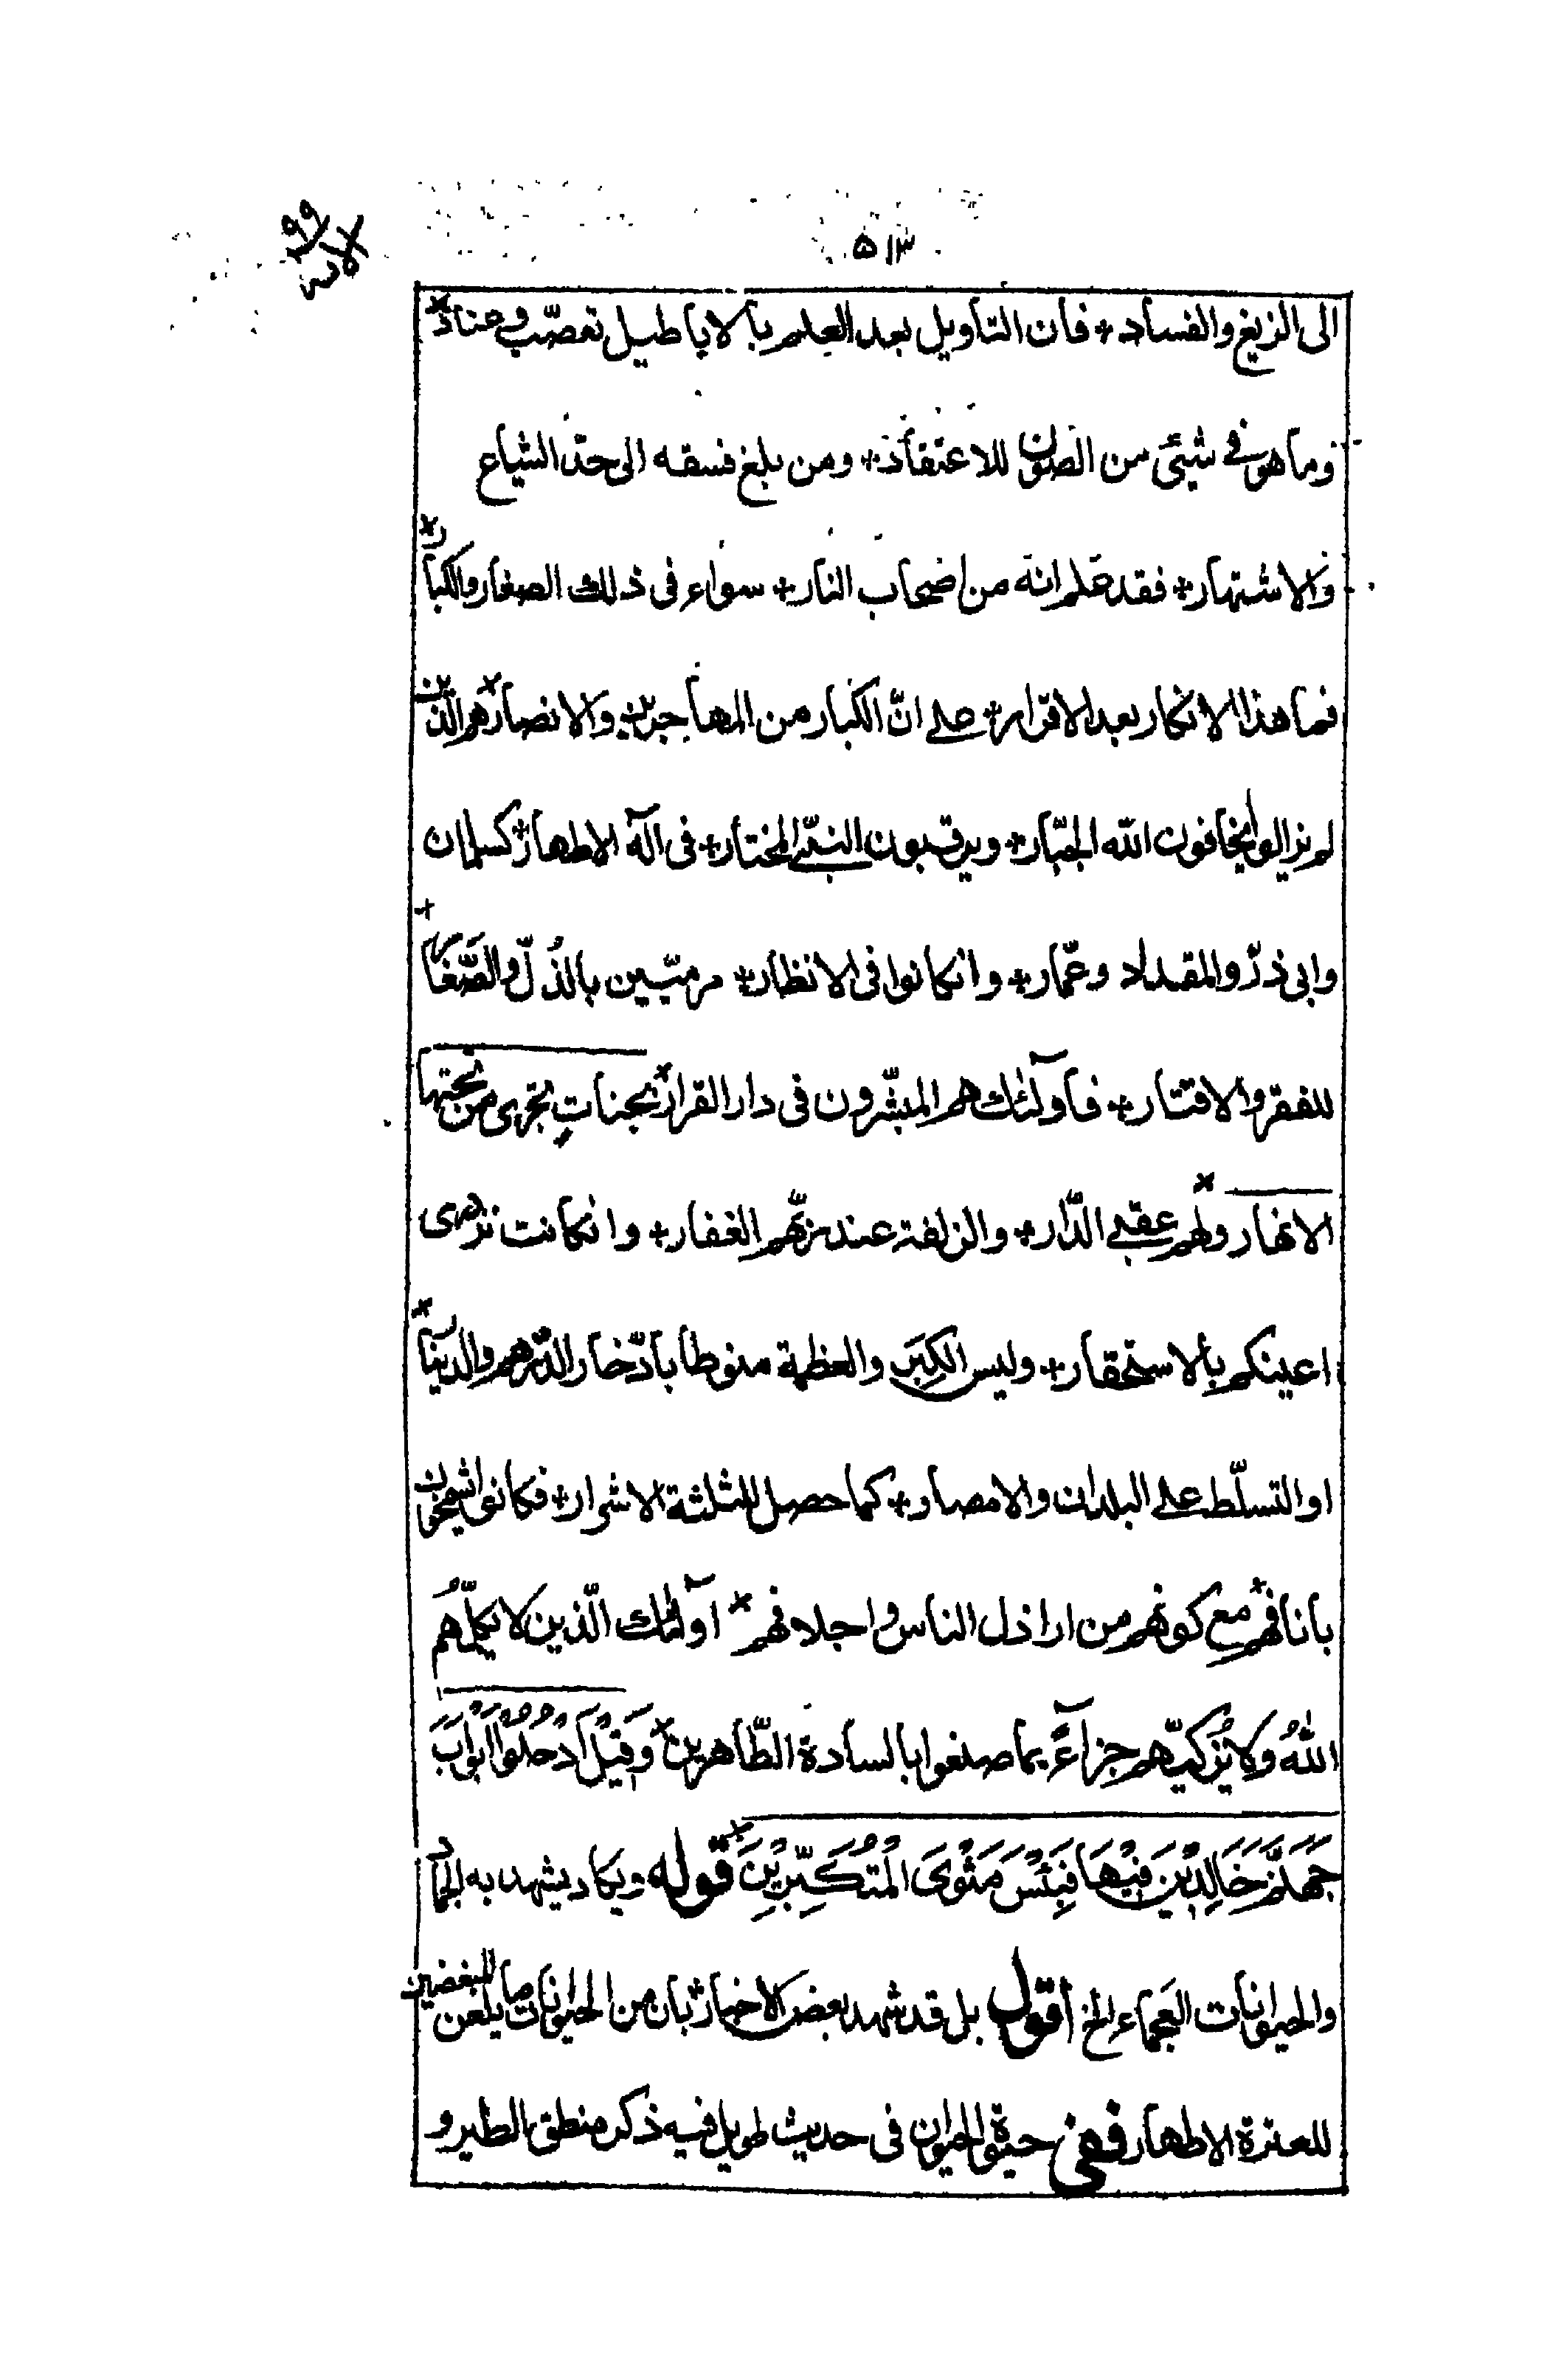 ٥١٣
الى الزيغ والفساد + فان التأويل بعد العلم بالاباطيل تعصّب وعناد +
وما هو فى شئ من الصون للاعتقاد + ومن بلغ فسقه الى حدّ الشياع
والاشتهار + فقد علم انه من اصحاب النار + سواء فى ذلك الصغار والكبار +
فما هذا الانكار بعد الاقرار + على انّ الكبار من المهاجرين والانصار + هم الذين
لم يزالوا يخافون الله الجبّار + ويرقبون النبىّ المختار + فى آله الاطهار + كسلمان
وابى ذرّ والمقداد وعمّار + وانكانوا فى الانظار + مرميّين بالذُلّ والصَّغار +
للفقر والاقتار + فاولٓئك هم المبشّرون فى دار القرار + بجناتٍ تجرى من تحتها
الانهار ولهم عقبى الدّار + والزلفة عند ربّهم الغفار + وانكانت تزدرى
اعينكم بالاستحقار + وليس الكِبَر والعظمة منوطا بادّخار الدّرهم والدينار +
او التسلّط على البلدان والامصار + كما حصل للثلثة الاشرار + فكانوا يشمخون
بانافهم + مع كونهم من اراذل الناس واجلافهم + اولٓئك الّذين لا يكلّمُهم
اللهُ ولا يُزكيّهم جزآءً بما صنعوا بالسادة الطّاهرين + وَقِيْلَ ادْخُلُوْا اَبْوَابَ
جَهَنَّمَ خَالِدِيْنَ فِيْهَا فَبِئْسَ مَثْوَى الْمُتَكَبِّرِيْنَ + قوله ويكاد يشهد به الجماد
والحيوانات العجماء الخ اقول بل قد شهد بعض الاخبار بان من الحيوانات ما يلعن للمبغضين
للعترة الاطهار ففى حيوة الحيوان فى حديث طويل فيه ذكر منطق الطير و